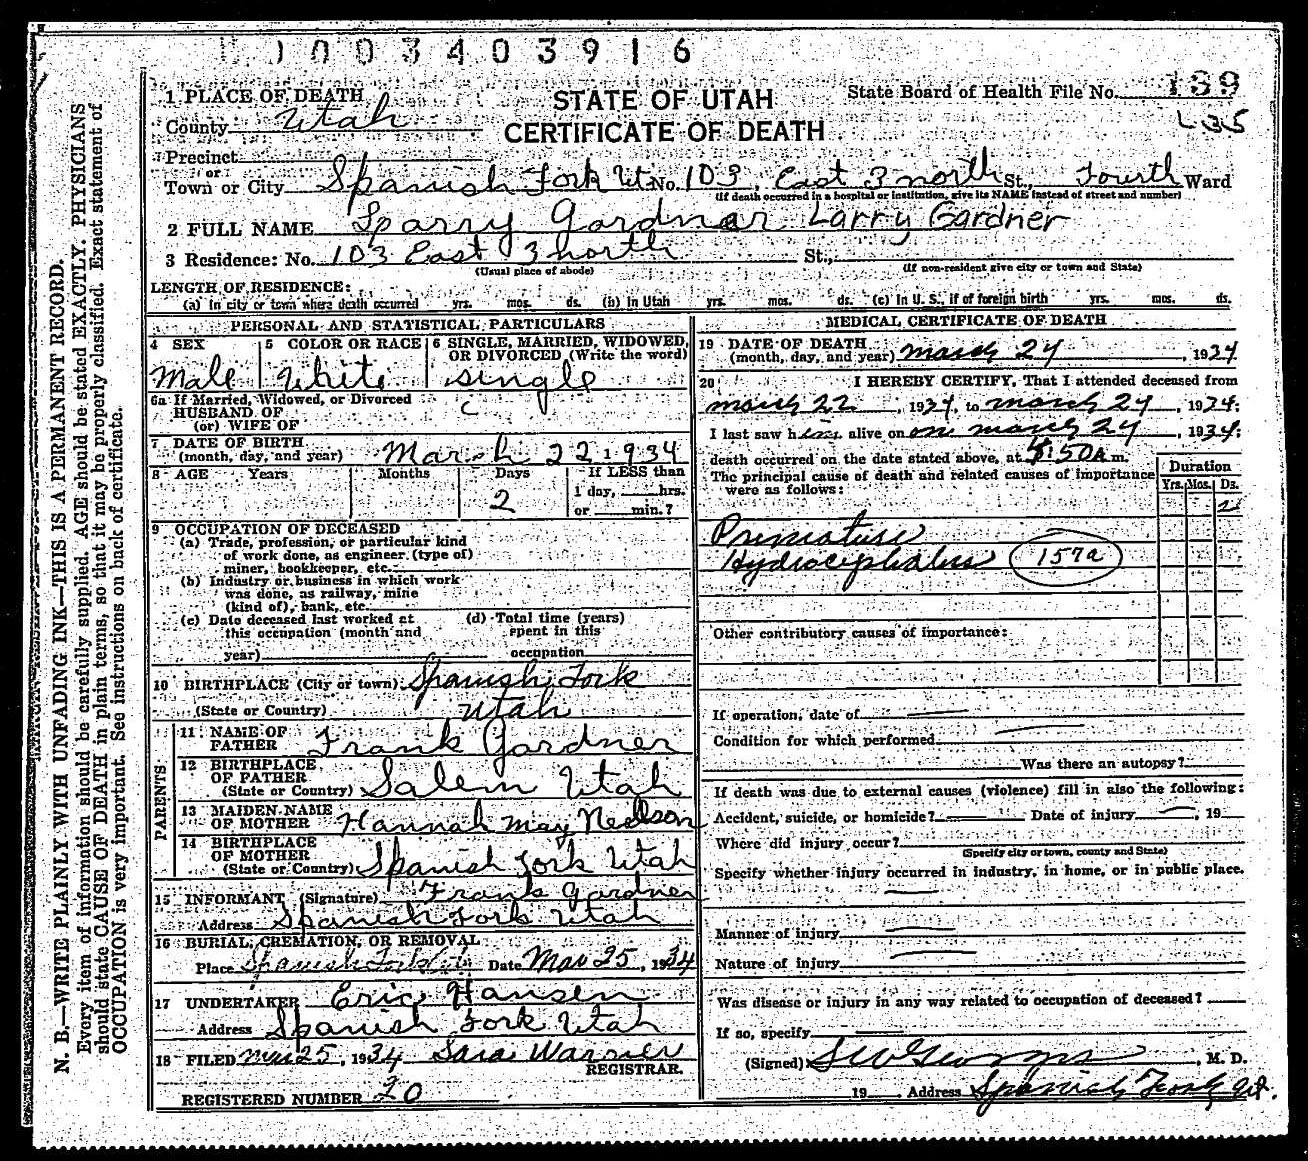 1003403916
STATE OF UTAH
CERTIFICATE OF DEATH
State Board of Health File No. 139
L35
1 PLACE OF DEATH
County Utah
Precinct
or
Town or City Spanish Fork Ut. No. 103, East 3 north St., Fourth Ward
(If death occurred in a hospital or institution, give its NAME instead of street and number)
2 FULL NAME Larry Gardner Larry Gardner
3 Residence: No. 103 East 3 north St.,
(Usual place of abode) (If non-resident give city or town and State)
LENGTH OF RESIDENCE:
(a) In city or town where death occurred yrs. mos. ds. (b) In Utah yrs. mos. ds. (c) In U. S., if of foreign birth yrs. mos. ds.
PERSONAL AND STATISTICAL PARTICULARS
4 SEX Male
5 COLOR OR RACE White
6 SINGLE, MARRIED, WIDOWED, OR DIVORCED (Write the word) single
6a If Married, Widowed, or Divorced
HUSBAND OF
(or) WIFE OF
7 DATE OF BIRTH
(month, day, and year) March 22 1934
8 AGE Years Months Days If LESS than
2 1 day, hrs.
or min.?
9 OCCUPATION OF DECEASED
(a) Trade, profession, or particular kind
of work done, as engineer (type of)
miner, bookkeeper, etc.
(b) Industry or business in which work
was done, as railway, mine
(kind of), bank, etc.
(c) Date deceased last worked at
this occupation (month and
year)
(d) Total time (years)
spent in this
occupation
10 BIRTHPLACE (City or town) Spanish Fork
(State or Country) Utah
PARENTS
11 NAME OF
FATHER Frank Gardner
12 BIRTHPLACE
OF FATHER
(State or Country) Salem Utah
13 MAIDEN NAME
OF MOTHER Hannah May Neilson
14 BIRTHPLACE
OF MOTHER
(State or Country) Spanish Fork Utah
15 INFORMANT (Signature) Frank Gardner
Address Spanish Fork Utah
16 BURIAL, CREMATION, OR REMOVAL
Place Spanish Fork Ut. Date Mar 25, 1934
17 UNDERTAKER Eric Hansen
Address Spanish Fork Utah
18 FILED Mar 25, 1934 Sara Warner
REGISTRAR.
REGISTERED NUMBER 20
MEDICAL CERTIFICATE OF DEATH
19 DATE OF DEATH
(month, day, and year) March 24, 1934
20 I HEREBY CERTIFY, That I attended deceased from
March 22, 1934, to March 24, 1934;
I last saw him alive on on March 24, 1934;
death occurred on the date stated above, at 4:50A m.
The principal cause of death and related causes of importance
were as follows:
Duration
Yrs. Mos. Ds.
2
Premature
Hydrocephalus 157a
Other contributory causes of importance:
If operation, date of
Condition for which performed
Was there an autopsy?
If death was due to external causes (violence) fill in also the following:
Accident, suicide, or homicide? Date of injury , 19
Where did injury occur?
(Specify city or town, county and State)
Specify whether injury occurred in industry, in home, or in public place.
Manner of injury
Nature of injury
Was disease or injury in any way related to occupation of deceased?
If so, specify
(Signed) , M. D.
19 , Address Spanish Fork Ut.
N. B.—WRITE PLAINLY WITH UNFADING INK—THIS IS A PERMANENT RECORD.
Every item of information should be carefully supplied. AGE should be stated EXACTLY. PHYSICIANS
should state CAUSE OF DEATH in plain terms, so that it may be properly classified. Exact statement of
OCCUPATION is very important. See instructions on back of certificate.